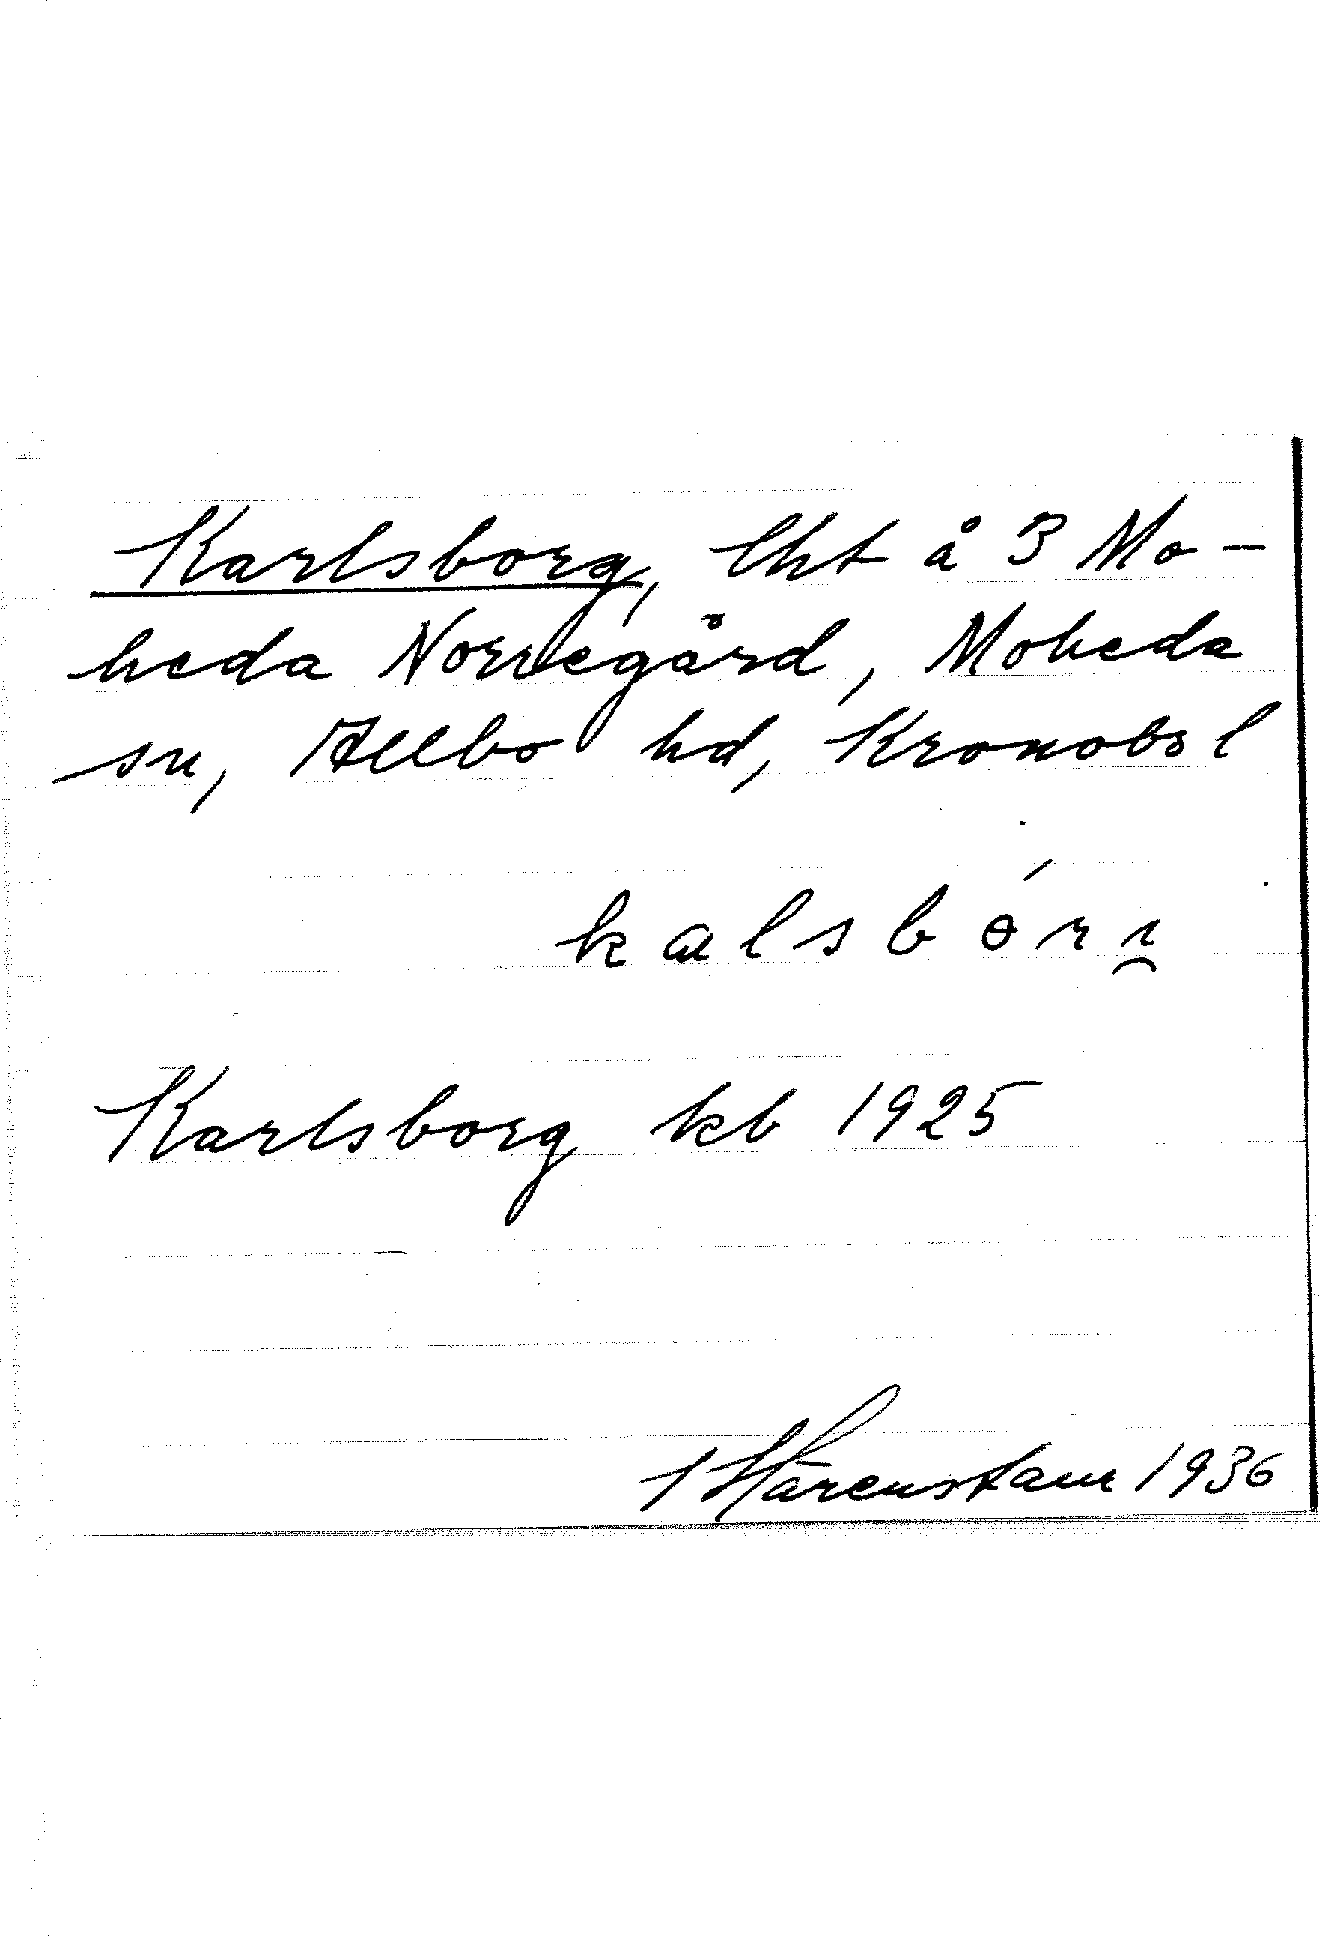 Karlsborg, lht å 3 Mo-
heda Norregård, Moheda
sn, Allbo hd, Kronobs l
kalsbɵ́rı̯
Karlsborg kb 1925
Härenstam 1936